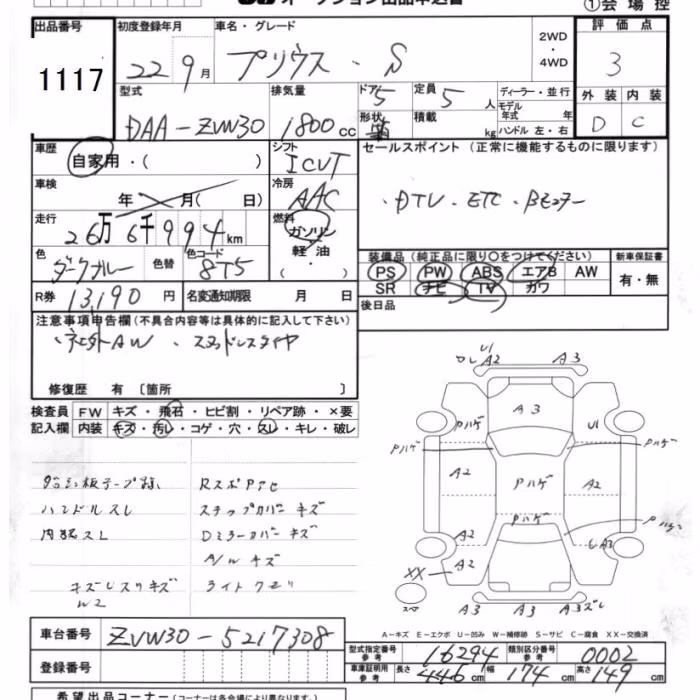 オークション出品申込書
①会場控
出品番号 初度登録年月 車名・グレード 2WD・4WD 評価点
1117 22 9月 プリウス・S 3
型式 排気量 ドア 5 定員 5人 ディーラー・並行 外装 内装
DAA-ZVW30 1800cc 形状 積載 kg モデル年式 年 ハンドル 左・右 D C
車歴 自家用・( ) シフト ICVT セールスポイント (正常に機能するものに限ります)
車検 年 月( 日) 冷房 AAC ・DTV・ETC・Bモニター
走行 26万6千994km 燃料 ガソリン 軽油・( )
色 ダークブルー 色替 色コード 8T5
装備品 (純正品に限り○をつけてください) 新車保証書
PS PW ABS エアB AW 有・無
SR ナビ TV カワ
R券 13,190円 名変通知期限 月 日 後日品
注意事項申告欄 (不具合内容等は具体的に記入して下さい)
・社外AW ・スタッドレスタイヤ
修復歴 有 [箇所 ]
検査員 FW キズ・飛石・ヒビ割・リペア跡・×要
記入欄 内装 キズ・汚レ・コゲ・穴・スレ・キレ・破レ
ハンドルスレ ステップカバーキズ
内張スレ Dミラーカバーキズ
A/Wキズ
U1
A2 A3
A3
Pハゲ U1
Pハゲ Pハゲ
A2 Pハゲ A2
Pハゲ
A2 Pハゲ
A2
XX
スペア A3 A3 A3
A-キズ E-エクボ U-凹み W-補修跡 S-サビ C-腐食 XX-交換済
車台番号 ZVW30-5217308
型式指定番号 参考 16294 類別区分番号 参考 0002
登録番号 車庫証明用 参考 長さ 446cm 幅 174cm 高さ 149cm
希望出品コーナー (コーナーは各会場により異なります)